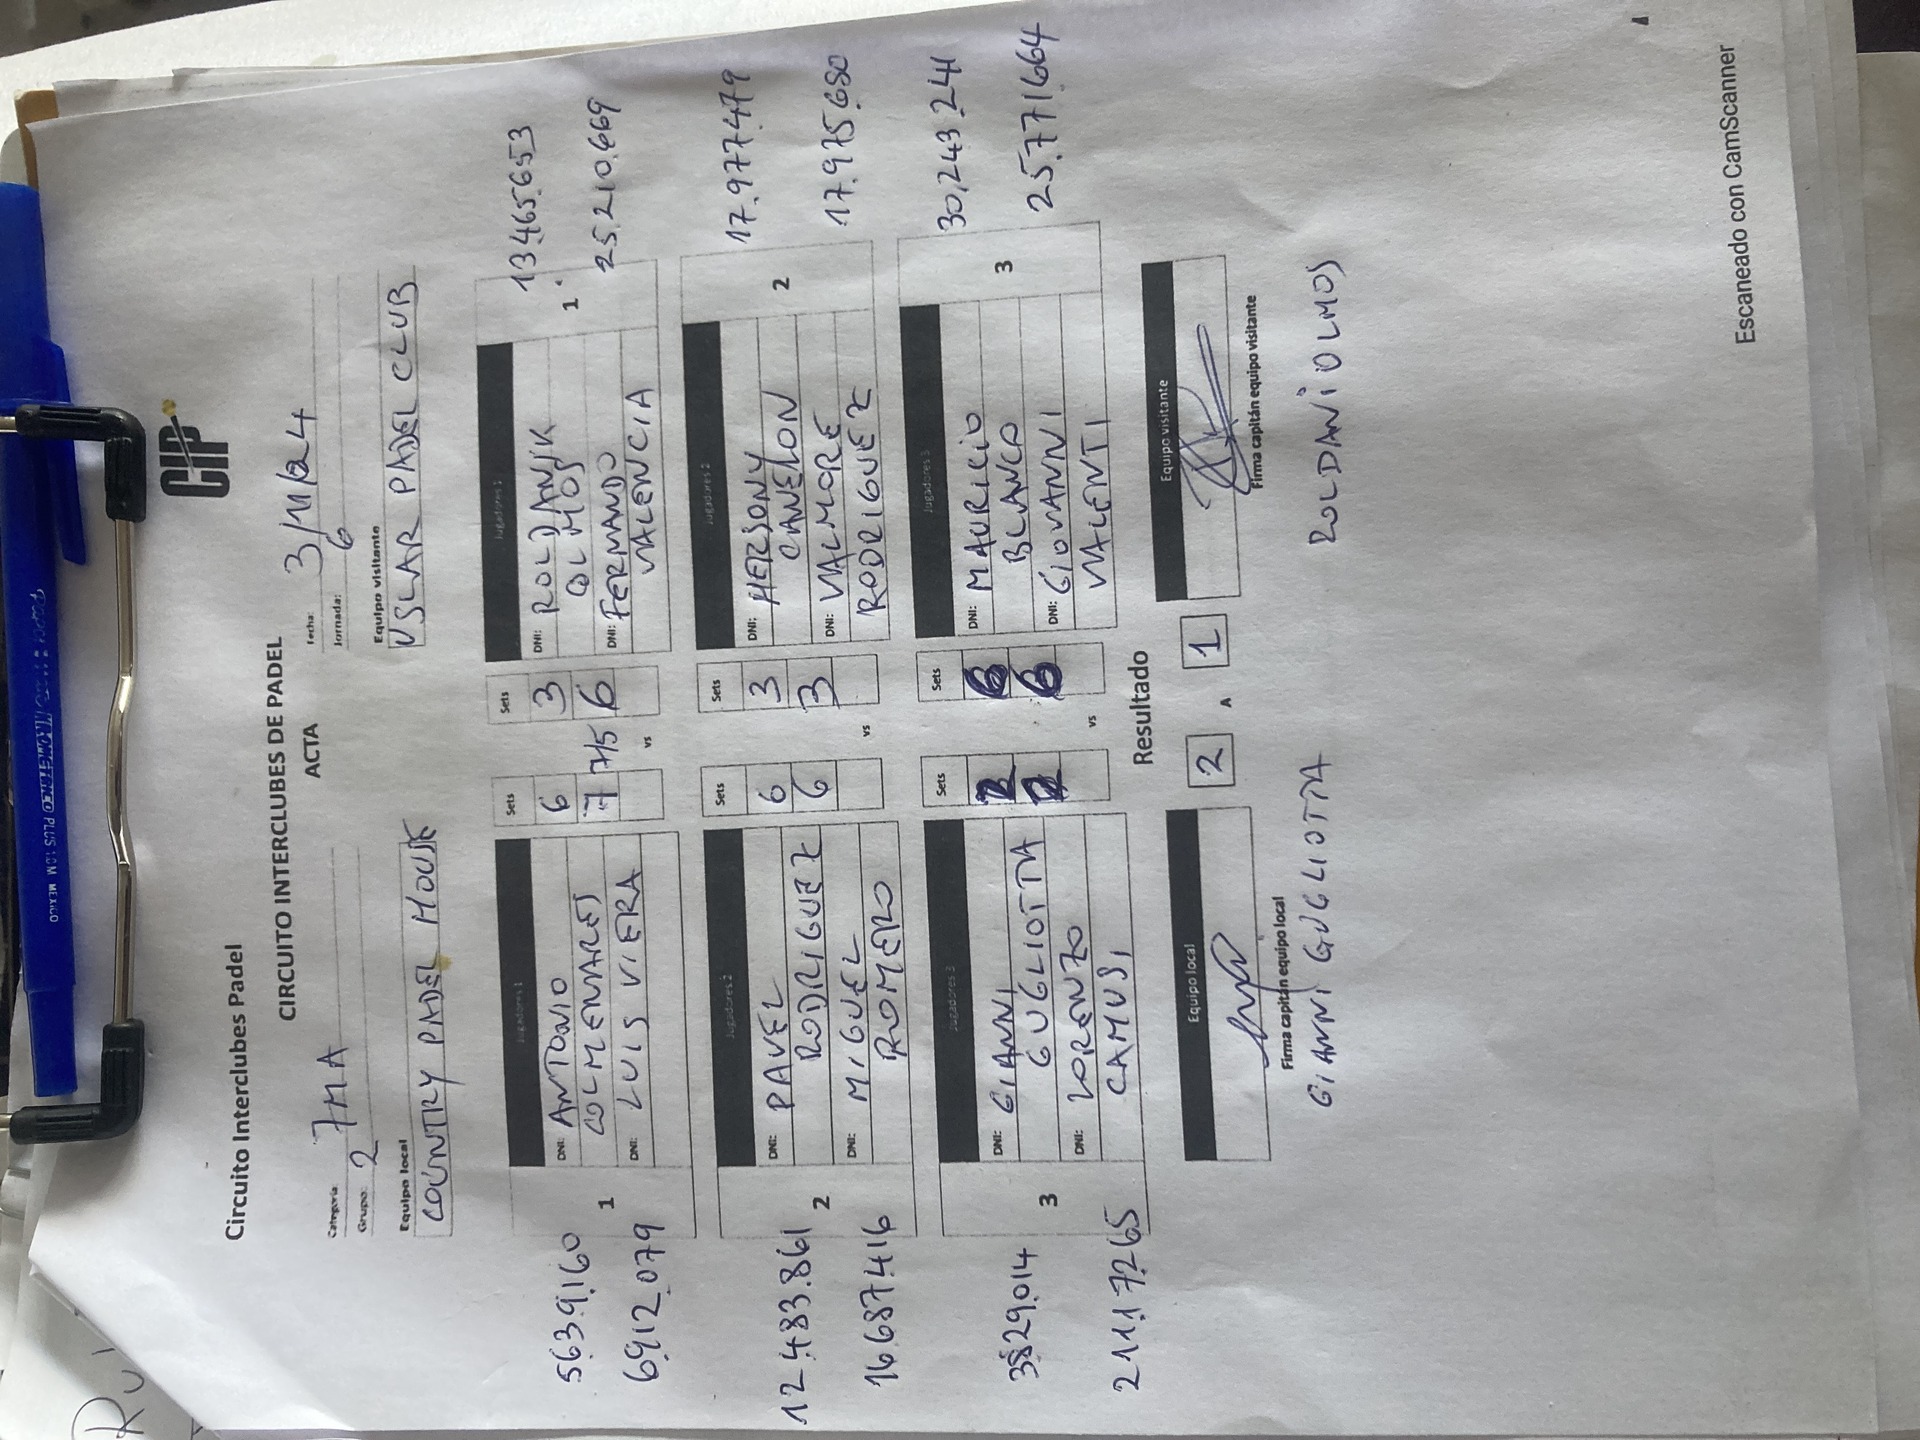 Circuito Interclubes Padel
CIP
CIRCUITO INTERCLUBES DE PADEL
ACTA
Categoría: 7MA
Grupo: 2
Fecha: 3/11/24
Jornada: 6
Equipo local
COUNTRY PADEL HOUSE
Equipo visitante
USLAR PADEL CLUB
Jugadores 1 Sets Sets Jugadores 1
5639.160 1 DNI: ANTONIO COLMENARES 6 3 DNI: ROLDANIK OLMOS 1 13465.653
6912.079 DNI: LUIS VIERA 7 7/5 6 DNI: FERNANDO VALENCIA 25.210.669
vs
Jugadores 2 Sets Sets Jugadores 2
12.483.861 2 DNI: PAVEL RODRIGUEZ 6 3 DNI: HERSONY CANELON 2 17.977.479
16.687.416 DNI: MIGUEL ROMERO 6 3 DNI: VALMORE RODRIGUEZ 17.975.680
vs
Jugadores 3 Sets Sets Jugadores 3
3829.014 3 DNI: GIANNI GUGLIOTTA 2 6 DNI: MAURICIO BLANCO 3 30.243.241
21117265 DNI: LORENZO CAMUSI 2 6 DNI: GIOVANNI VALENTI 25.771.664
vs
Resultado
Equipo local 2 A 1 Equipo visitante
Firma capitán equipo local
Firma capitán equipo visitante
GIANNI GUGLIOTTA
ROLDANI OLMOS
Escaneado con CamScanner